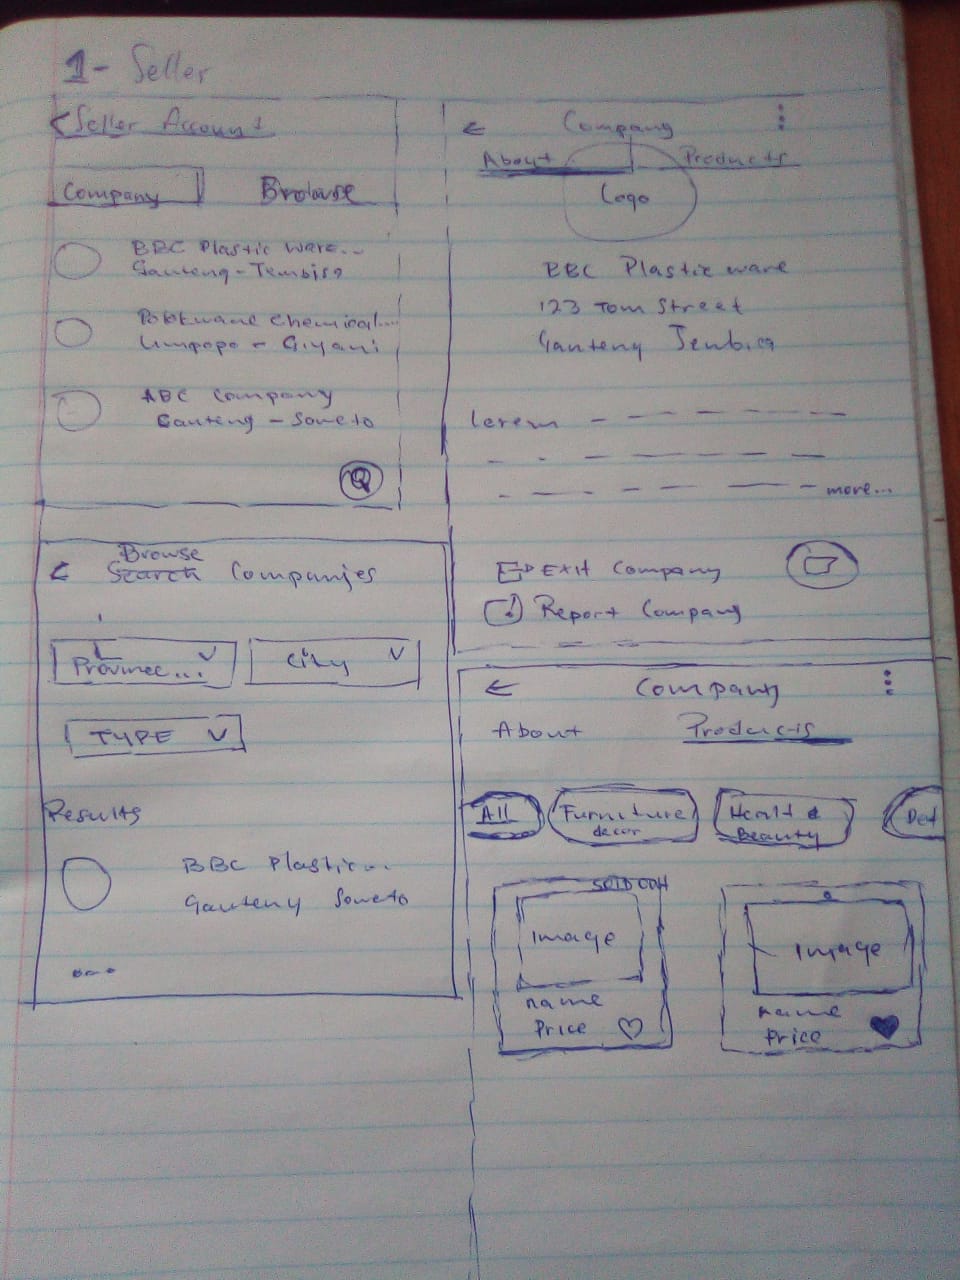 1- Seller
Seller Account
Company Browse
BBC Plastic ware...
Gauteng - Tembisa
Polokwane Chemical....
Limpopo - Giyani
ABC Company
Gauteng - Soweto
Q
Browse
Search Companies
Province... City
TYPE
Results
BBC Plastic...
Gauteng Soweto
...
Company
About Products
Logo
BBC Plastic ware
123 Tom Street
Gauteng Tembisa
Lorem
more...
EXIT Company
Report Company
Company
About Products
All Furniture decor Health & Beauty
SOLD OUT
Image
name
Price
Image
name
Price